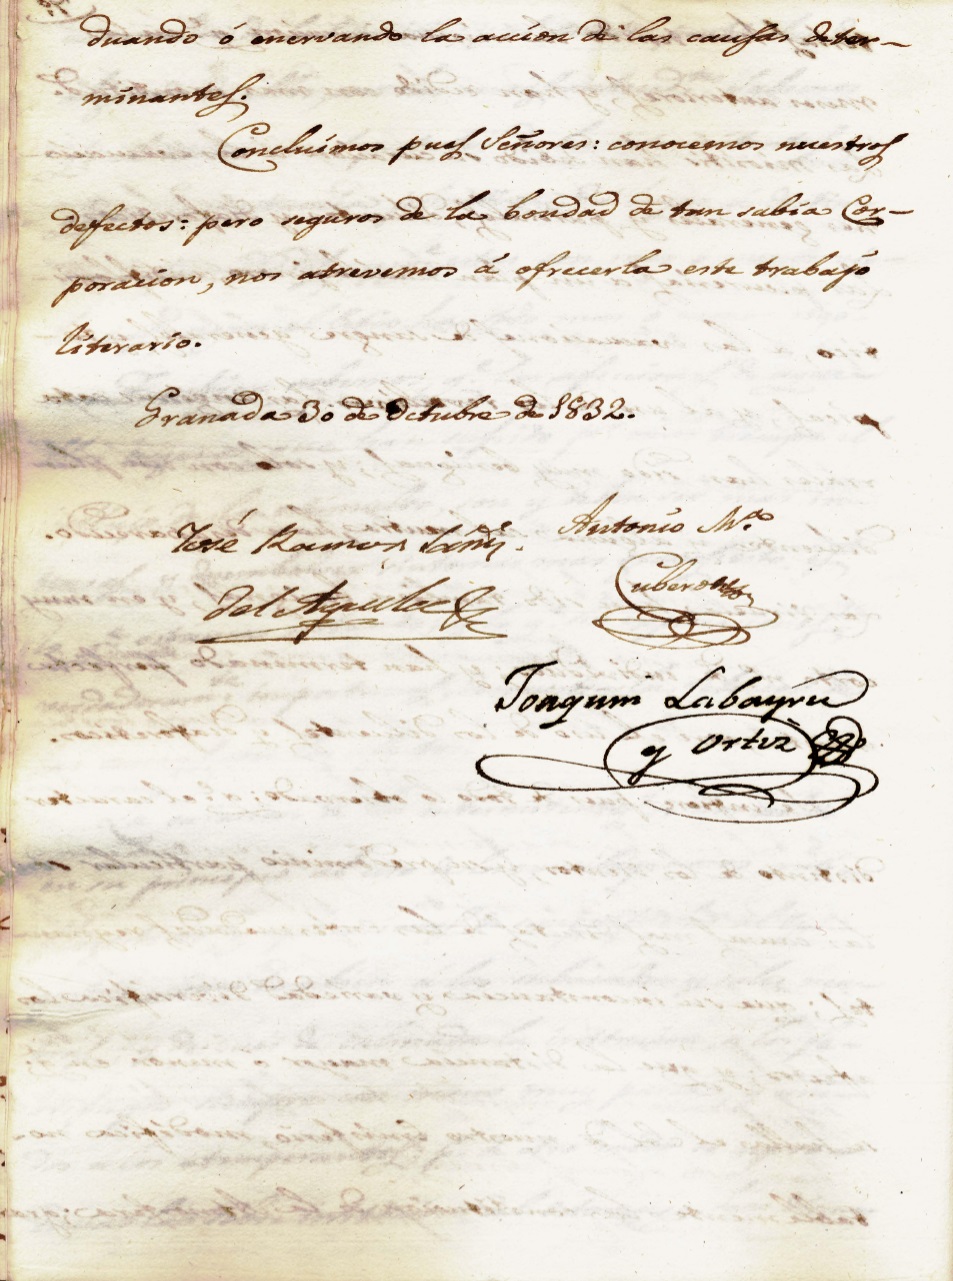 duando ó enervando la accion de las causas deter-
minantes.
Concluimos pues Señores: conocemos nuestros
defectos: pero seguros de la bondad de tan sabia Cor-
poracion, nos atrevemos á ofrecerla este trabajo
literario.
Granada 30 de Octubre de 1832.
José Ramon
Antonio Mª
del Aguila
Cubero
Joaquin Labayru
y Ortiz